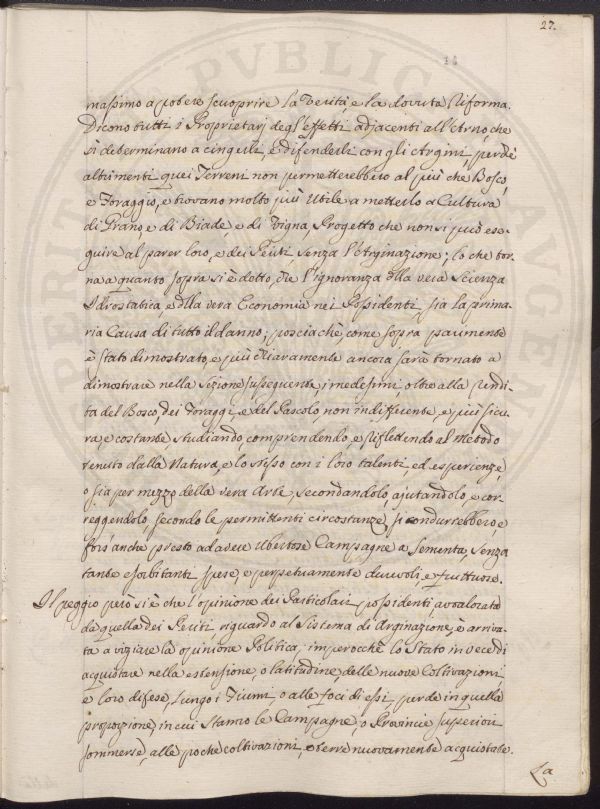 27.
massimo a potere scuoprire la Verità, e la dovuta Riforma.
Dicono tutti i Proprietarj degl'effetti adjacenti all'Arno, che
si determinano a cingerli, e difenderli con gli Argini perchè
altrimenti quei Terreni non permetterebbero al più che Bosco,
e Foraggio, e trovano molto più Utile a metterlo a Cultura
di Grano, e di Biade e di Vigna, Progetto che non si può ese-
guire al parer loro, e dei Periti, senza l'Arginazione; lo che tor-
na a quanto sopra si è detto, che l'ignoranza della vera Scienza
Idrostatica, e della vera Economia nei Possidenti, sia la prima-
ria Causa di tutto il danno; posciachè, come sopra parimente
è stato dimostrato, e più chiaramente ancora sarà tornato a
dimostrare nella Sezione susseguente, i medesimi, oltre alla rendi-
ta del Bosco, dei Foraggi, e del Pascolo, non indifferente, e più sicu-
ra, e costante studiando comprendendo, e riflettendo al Metodo
tenuto dalla Natura, e lo stesso con i loro talenti, ed esperienze,
o sia per mezzo della vera Arte, secondandolo, ajutandolo, e cor-
reggendolo, secondo le permittenti circostanze, si condurrebbero, e
fors'anche presto ad avere Ubertose Campagne a Sementa, senza
tante esorbitanti spese, e perpetuamente durevoli e fruttuose.
Il peggio però si è che l'opinione dei Particolari possidenti, avvalorata
da quella dei Periti riguardo al Sistema di Arginazione, è arriva-
ta a viziare la opinione Politica; imperocchè lo Stato in vece di
acquistare nella estensione, o latitudine, delle nuove Coltivazioni,
e loro difese, lungo i Fiumi, o alle foci di essi, perde in quella
proporzione, in cui stanno le Campagne, o Provincie superiori
sommerse, alle poche coltivazioni, o terre nuovamente acquistate.
La